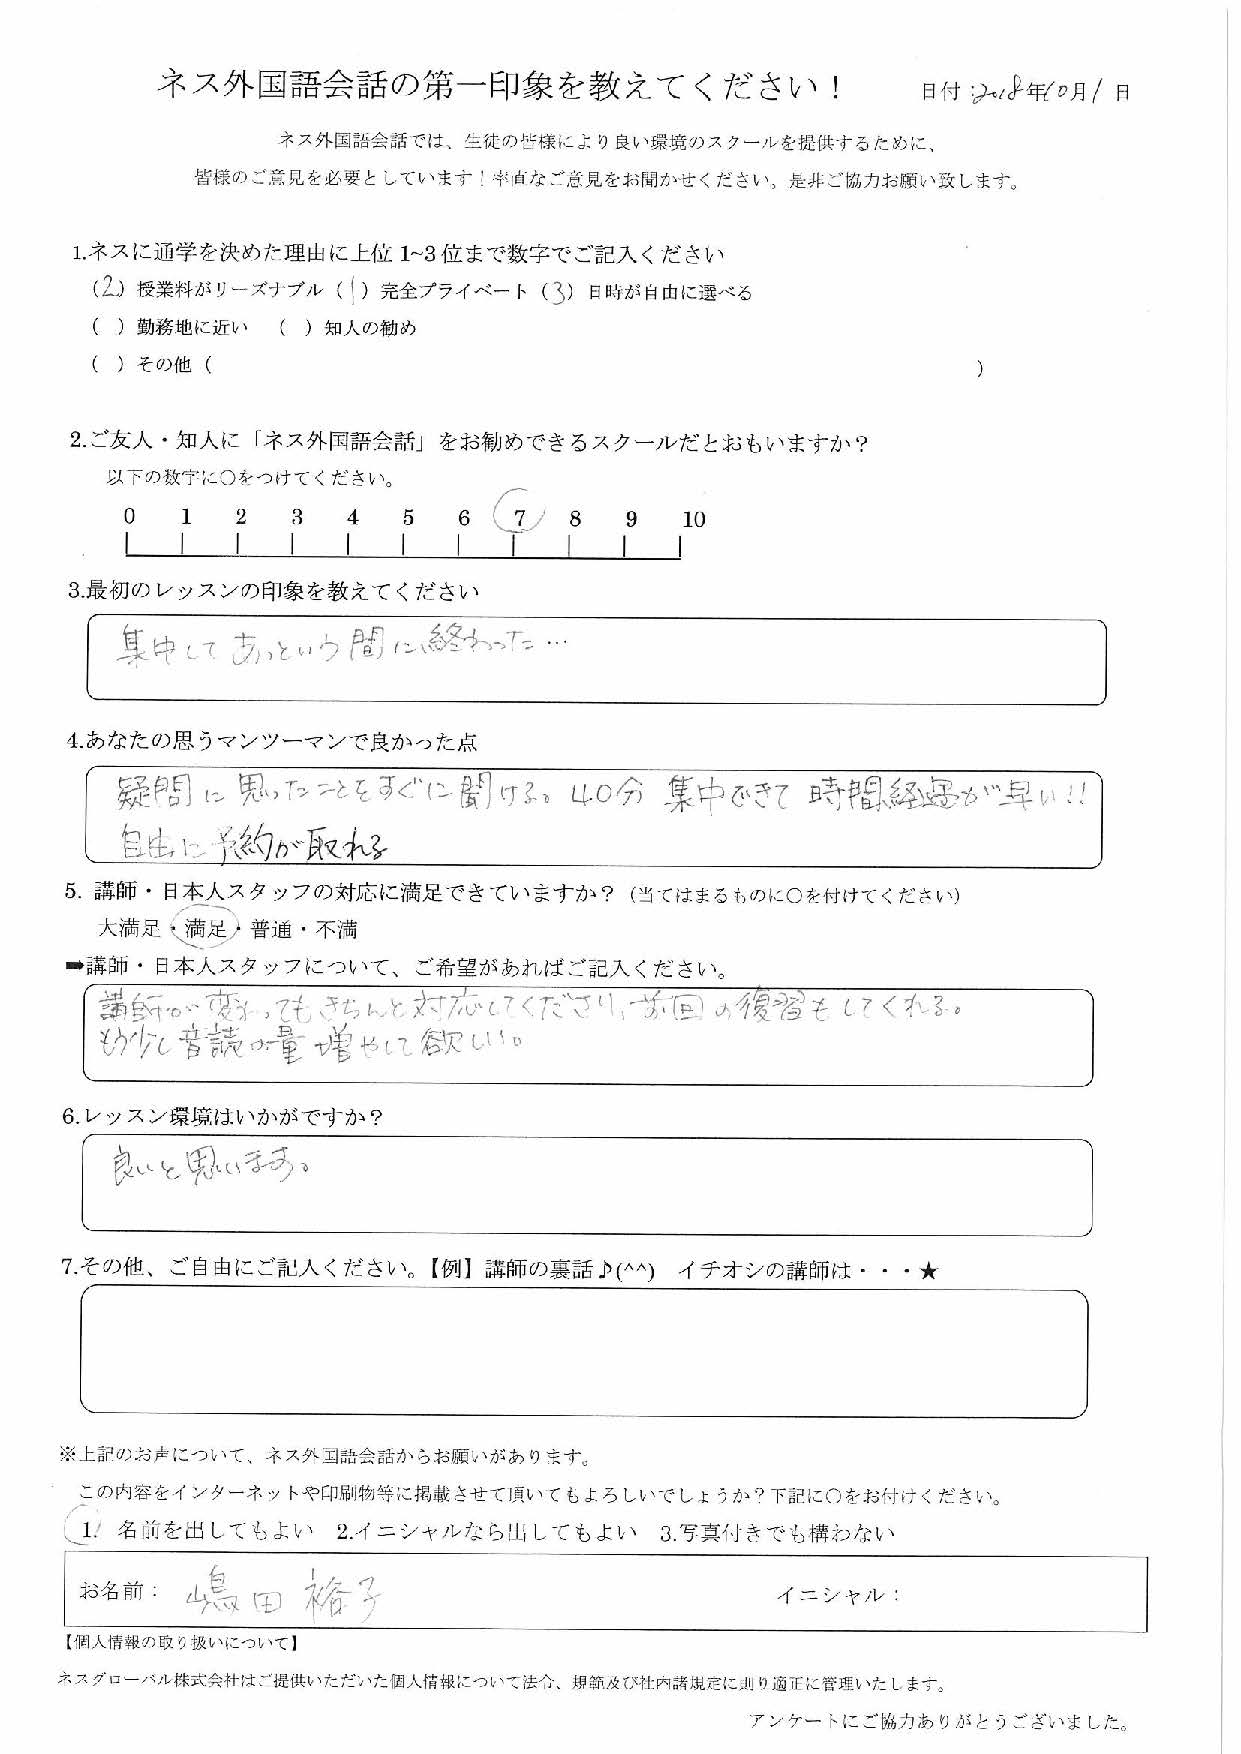 ネス外国語会話の第一印象を教えてください！
日付：2018年10月1日
ネス外国語会話では、生徒の皆様により良い環境のスクールを提供するために、
皆様のご意見を必要としています！率直なご意見をお聞かせください。是非ご協力お願い致します。
1.ネスに通学を決めた理由に上位 1~3 位まで数字でご記入ください
（2）授業料がリーズナブル（1）完全プライベート（3）日時が自由に選べる
（ ）勤務地に近い （ ）知人の勧め
（ ）その他（ ）
2.ご友人・知人に「ネス外国語会話」をお勧めできるスクールだとおもいますか？
以下の数字に〇をつけてください。
0 1 2 3 4 5 6 7 8 9 10
3.最初のレッスンの印象を教えてください
集中してあっという間に終わった…
4.あなたの思うマンツーマンで良かった点
疑問に思ったことをすぐに聞ける。40分 集中できて 時間経過が早い!!
自由に予約が取れる
5. 講師・日本人スタッフの対応に満足できていますか？（当てはまるものに〇を付けてください）
大満足・満足・普通・不満
➡講師・日本人スタッフについて、ご希望があればご記入ください。
講師が変わってもきちんと対応してくださり、前回の復習もしてくれる。
もう少し音読の量増やして欲しい。
6.レッスン環境はいかがですか？
良いと思います。
7.その他、ご自由にご記入ください。【例】講師の裏話♪(^^) イチオシの講師は・・・★
※上記のお声について、ネス外国語会話からお願いがあります。
この内容をインターネットや印刷物等に掲載させて頂いてもよろしいでしょうか？下記に〇をお付けください。
1. 名前を出してもよい 2.イニシャルなら出してもよい 3.写真付きでも構わない
お名前： 嶋田 裕子 イニシャル：
【個人情報の取り扱いについて】
ネスグローバル株式会社はご提供いただいた個人情報について法令、規範及び社内諸規定に則り適正に管理いたします。
アンケートにご協力ありがとうございました。